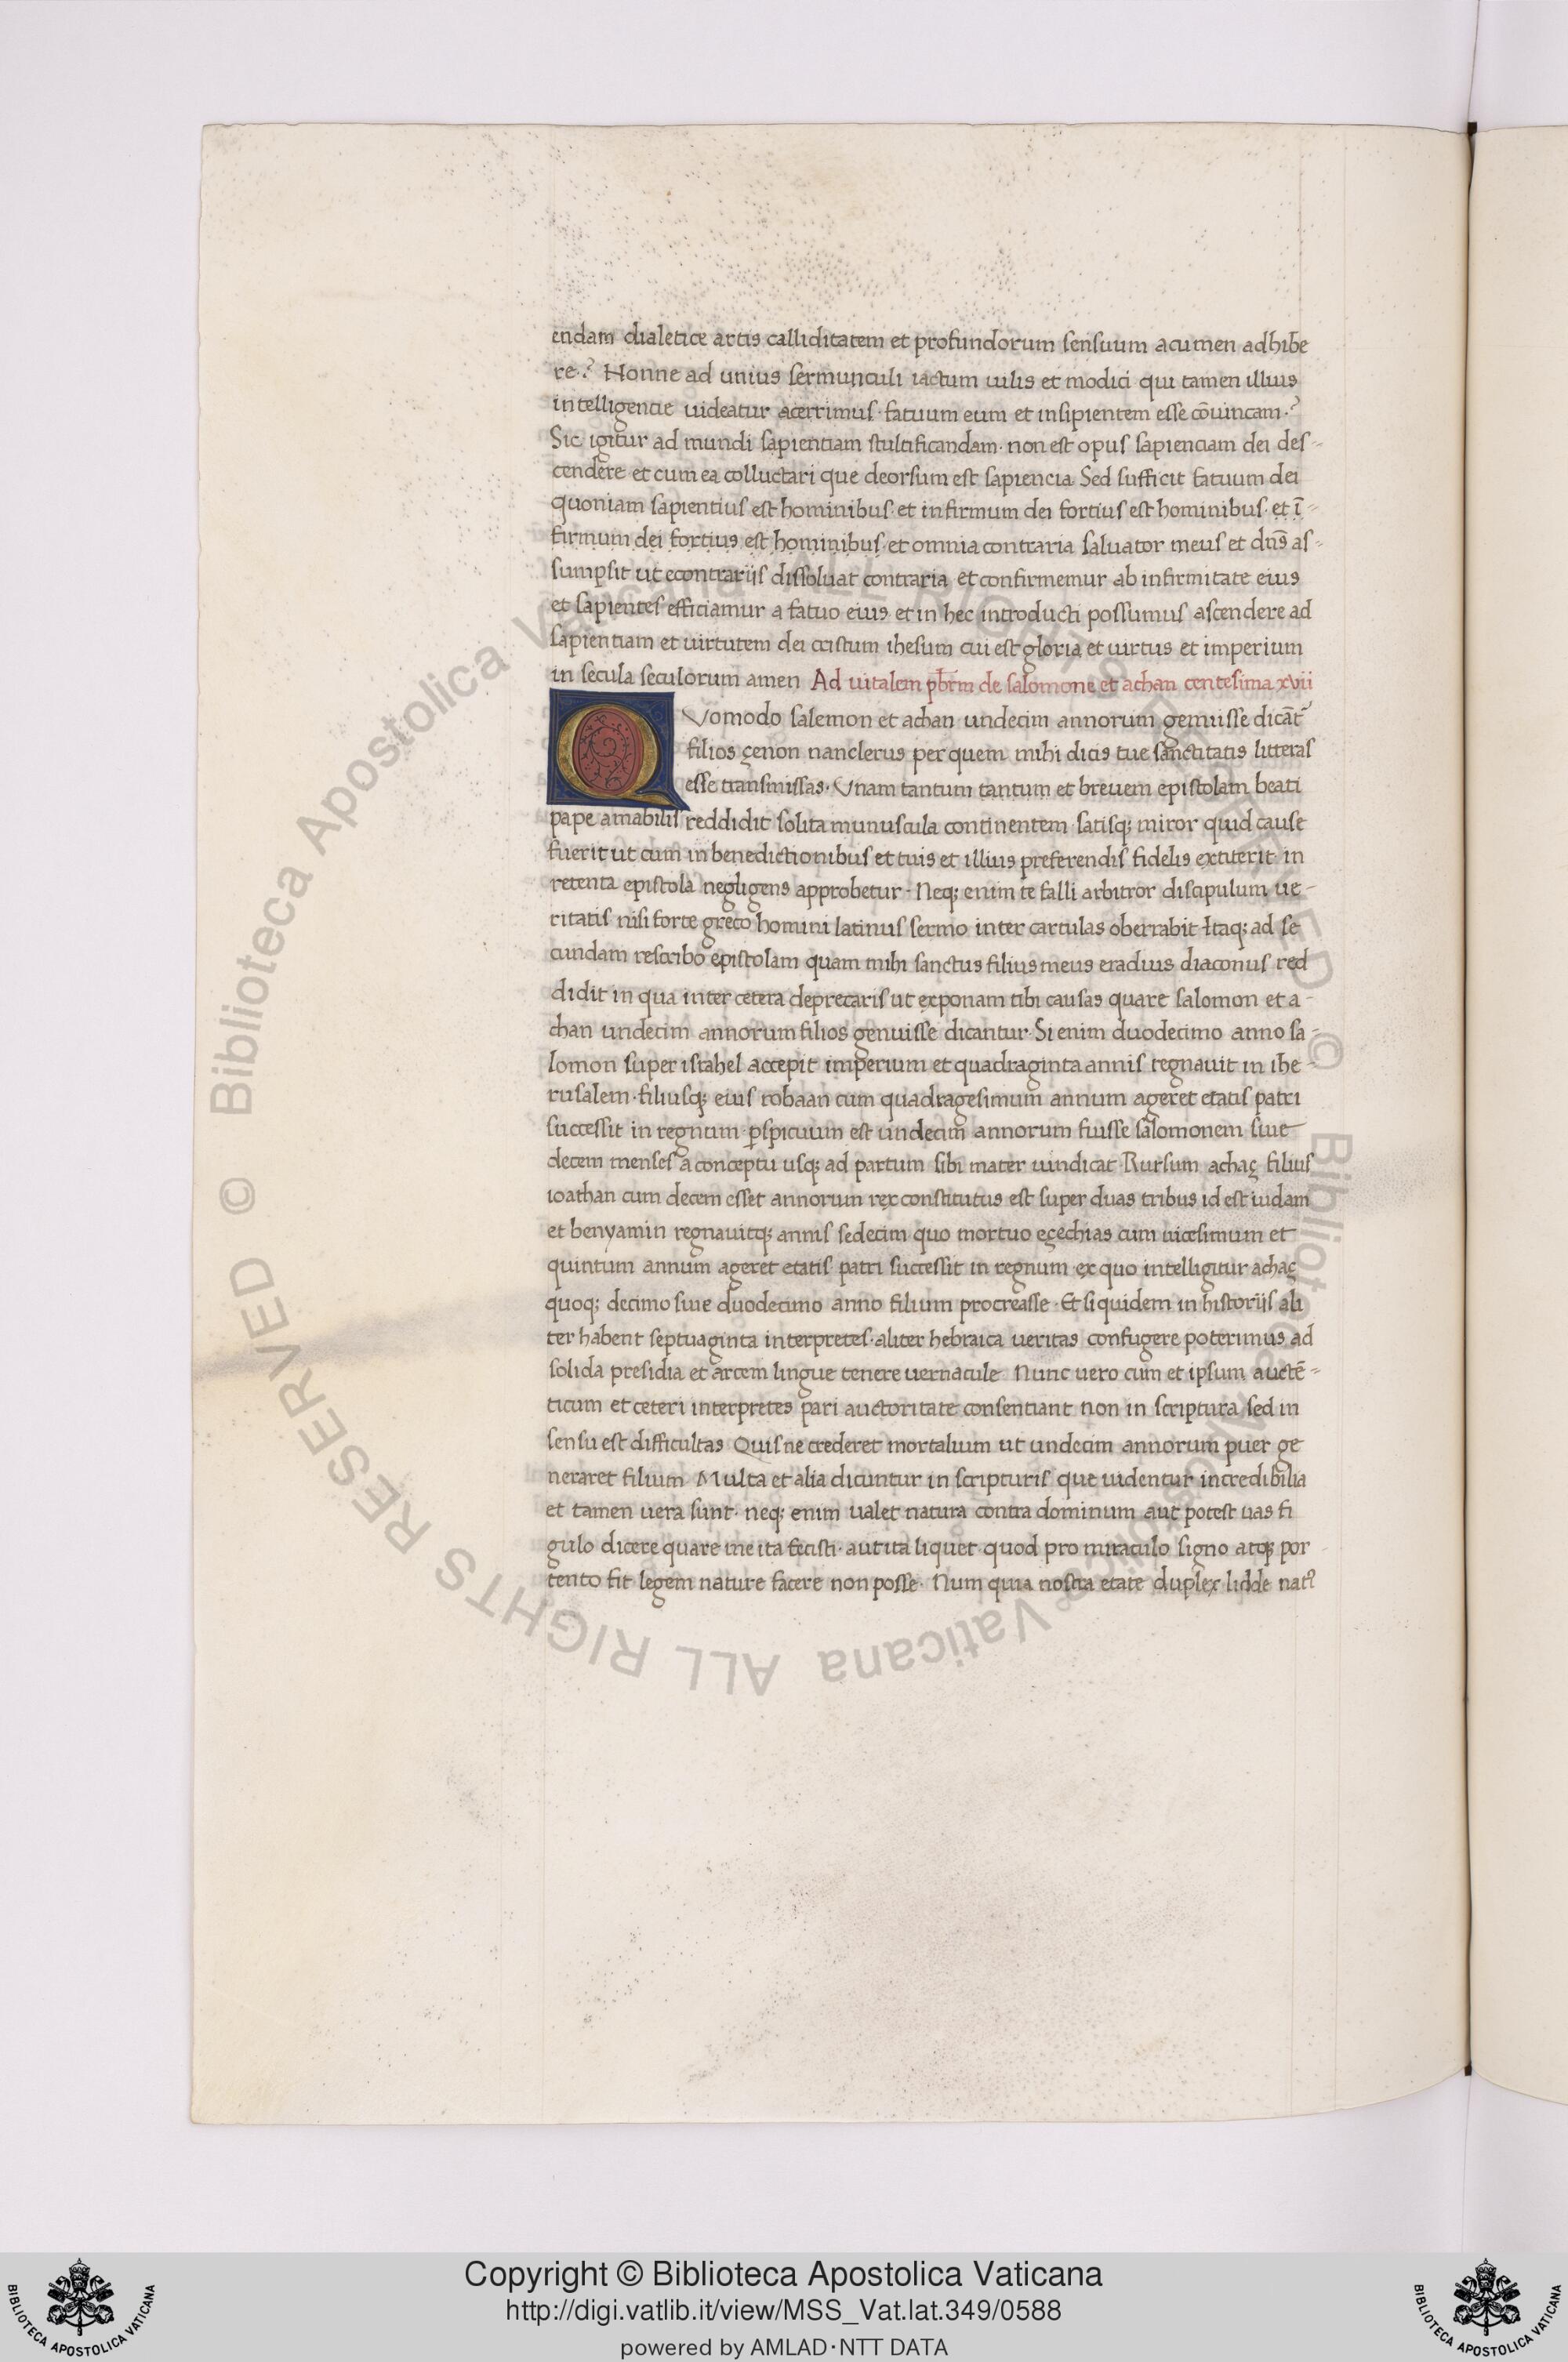 endam dialetice artis calliditatem et profundorum sensuum acumen adhibe
re.? Nonne ad unius sermunculi iactum uilis et modici qui tamen illius
intelligencie uideatur acerrimus· fatuum eum et insipientem esse cōuincam·?
Sic igitur ad mundi sapientiam stultificandam· non est opus sapienciam dei des-
cendere et cum ea colluctari que deorsum est sapiencia Sed sufficit fatuum dei
quoniam sapientius est hominibus· et infirmum dei fortius est hominibus· et ī-
firmum dei fortius est hominibus· et omnia contraria saluator meus et dn̄s as-
sumpsit ut econtrarijs dissoluat contraria et confirmemur ab infirmitate eius
et sapientes efficiamur a fatuo eius et in hec introducti possumus ascendere ad
sapientiam et uirtutem dei cristum ihesum cui est gloria et uirtus et imperium
in secula seculorum amen Ad uitalem pbr̄m de salomone et achan centesima xvii
Quomodo salemon et achan undecim annorum genuisse dicāt͛
filios çenon nanclerus per quem mihi dicis tue sanctitatis litteras
esse transmissas· Vnam tantum tantum et breuem epistolam beati
pape amabilis reddidit solita munuscula continentem· satisq; miror quid cause
fuerit ut cum in benedictionibus et tuis et illius preferendis fidelis extiterit· in
retenta epistola negligens approbetur· Neq; enim te falli arbitror discipulum ue-
ritatis nisi forte greco homini latinus sermo inter cartulas oberrabit· Itaq; ad se
cundam rescribo epistolam quam mihi sanctus filius meus eradius diaconus red
didit in qua inter cetera deprecaris ut exponam tibi causas quare salomon et a-
chan undecim annorum filios genuisse dicantur· Si enim duodecimo anno sa-
lomon super israhel accepit imperium et quadraginta annis regnauit in ihe-
rusalem· filiusq; eius robaan cum quadragesimum annum ageret etatis patri
successit in regnum· ꝑspicuum est undecim annorum fuisse salomonem siue
decem menses a conceptu usq; ad partum sibi mater uindicat· Rursum achaç filius
ioathan cum decem esset annorum rex constitutus est super duas tribus id est iudam
et benyamin regnauitq; annis sedecim quo mortuo eçechias cum uicesimum et
quintum annum ageret etatis patri successit in regnum· ex quo intelligitur achaç
quoq; decimo siue duodecimo anno filium procreasse· Et siquidem in historijs ali
ter habent septuaginta interpretes· aliter hebraica ueritas confugere poterimus ad
solida presidia et arcem lingue tenere uernacule· Nunc uero cum et ipsum auctē-
ticum et ceteri interpretes pari auctoritate consentiant non in scriptura sed in
sensu est difficultas Quis ne crederet mortalium ut undecim annorum puer ge
neraret filium· Multa et alia dicuntur in scripturis que uidentur incredibilia
et tamen uera sunt· neq; enim ualet natura contra dominum aut potest uas fi
gulo dicere quare me ita fecisti· aut ita liquet quod pro miraculo signo atq; por
tento fit legem nature facere non posse· Num quia nostra etate duplex lidde natꝰ
© Biblioteca Apostolica Vaticana ALL RIGHTS RESERVED © Biblioteca Apostolica Vaticana ALL RIGHTS RESERVED
Copyright © Biblioteca Apostolica Vaticana
http://digi.vatlib.it/view/MSS_Vat.lat.349/0588
powered by AMLAD·NTT DATA
BIBLIOTECA APOSTOLICA VATICANA
BIBLIOTECA APOSTOLICA VATICANA